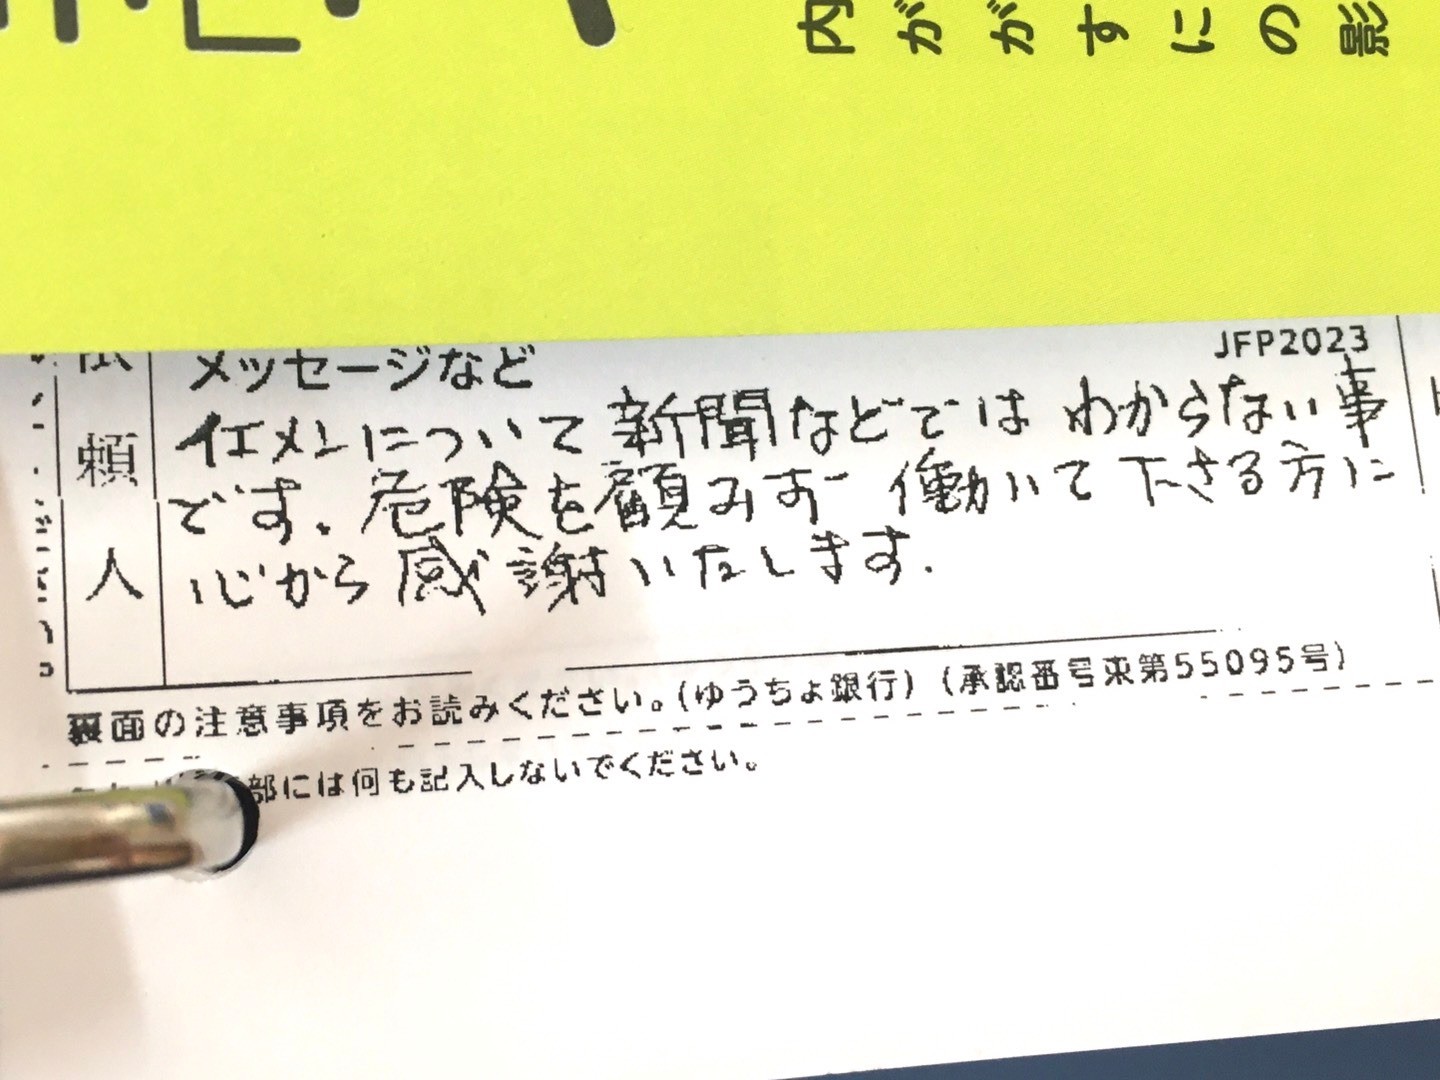 内
が
が
す
に
の
影
JFP2023
メッセージなど
頼
人
イエメンについて新聞などではわからない事
です。危険を顧みず働いて下さる方に
心から感謝いたします.
裏面の注意事項をお読みください。(ゆうちょ銀行)(承認番号東第55095号)
部には何も記入しないでください。